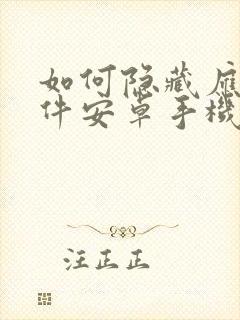 如何隐藏应
件安卓手機
汪正正